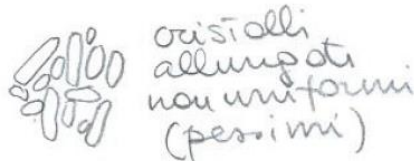 cristalli
allungati
non uniformi
(pessimi)